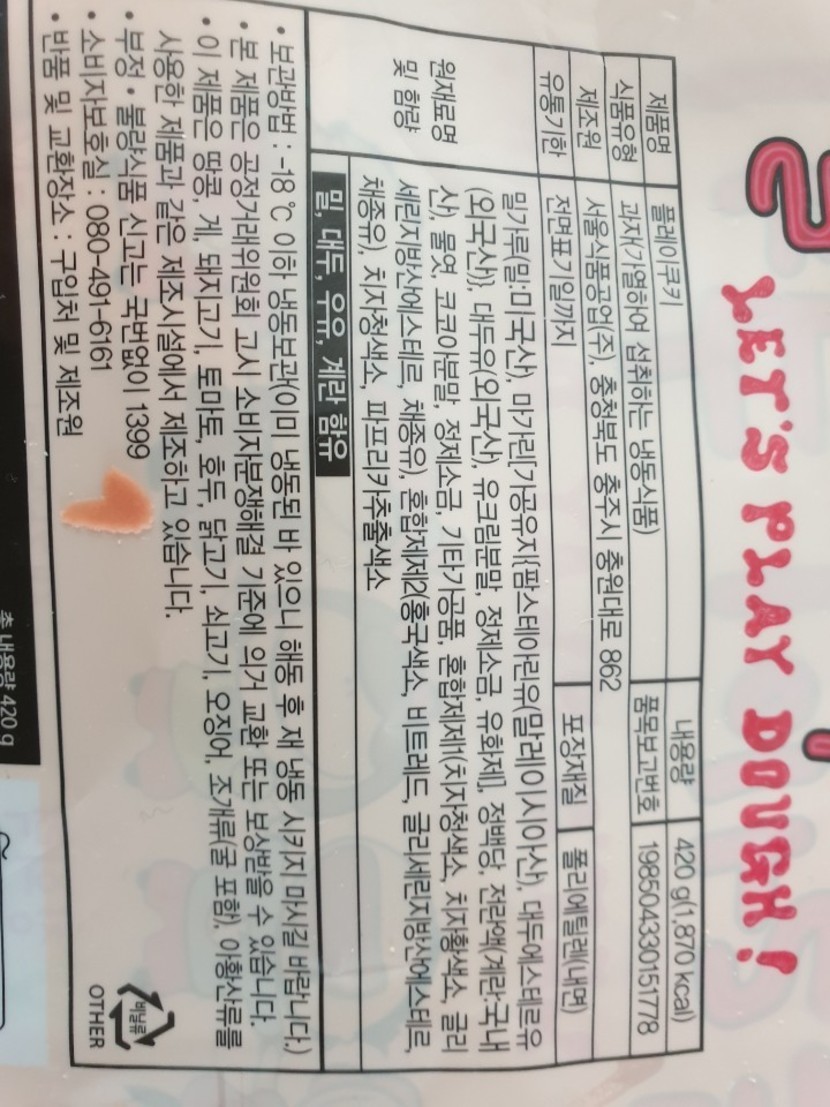 LET'S PLAY DOUGH!
제품명 플레이쿠키 내용량 420 g(1,870 kcal)
식품유형 과자(가열하여 섭취하는 냉동식품) 품목보고번호 198504330151778
제조원 서울식품공업(주), 충청북도 충주시 충원대로 862
유통기한 전면표기일까지 포장재질 폴리에틸렌(내면)
원재료명 및 함량
밀가루(밀:미국산), 마가린[가공유지{팜스테아린유(말레이시아산), 대두에스테르유
(외국산)}, 대두유(외국산), 유크림분말, 정제소금, 유화제], 정백당, 전란액(계란:국내
산), 물엿, 코코아분말, 정제소금, 기타가공품, 혼합제제1(치자청색소, 치자황색소, 글리
세린지방산에스테르, 채종유), 혼합제제2(홍국색소, 비트레드, 글리세린지방산에스테르,
채종유), 치자청색소, 파프리카추출색소
밀, 대두, 우유, 계란 함유
• 보관방법 : -18 ℃ 이하 냉동보관(이미 냉동된 바 있으니 해동 후 재 냉동 시키지 마시길 바랍니다.)
• 본 제품은 공정거래위원회 고시 소비자분쟁해결 기준에 의거 교환 또는 보상받을 수 있습니다.
• 이 제품은 땅콩, 게, 돼지고기, 토마토, 호두, 닭고기, 쇠고기, 오징어, 조개류(굴 포함), 아황산류를
사용한 제품과 같은 제조시설에서 제조하고 있습니다.
• 부정 • 불량식품 신고는 국번없이 1399
• 소비자보호실 : 080-491-6161
• 반품 및 교환장소 : 구입처 및 제조원
비닐류
OTHER
총 내용량 420 g